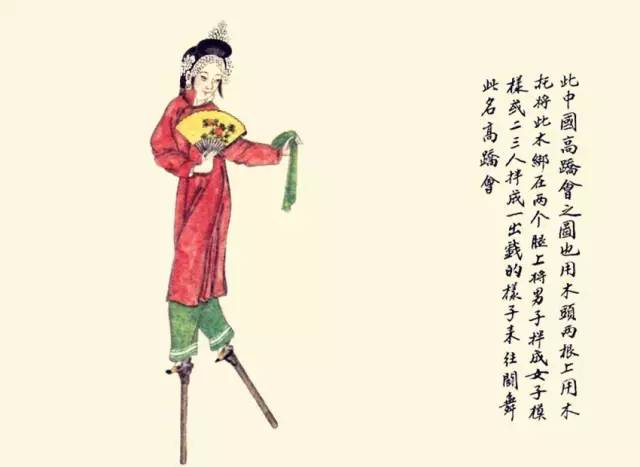 此中國高蹻會之圖也用木頭兩根上用木
托将此木綁在两个腿上将男子拌成女子模
樣或二三人拌成一出戯的樣子来往鬪舞
此名高蹻會